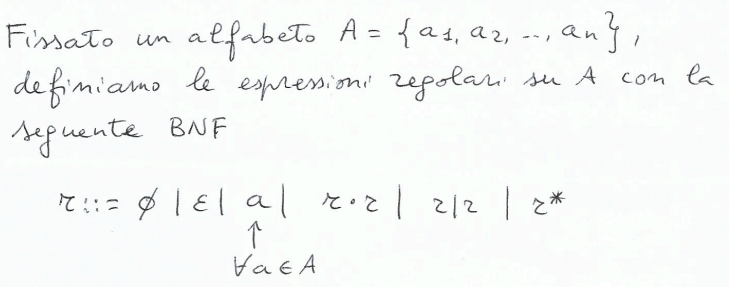 Fissato un alfabeto A = {a1, a2, .., an},
definiamo le espressioni regolari su A con la
seguente BNF
r::= ∅ | ε | a | r·r | r|r | r*
↑
∀a∈A